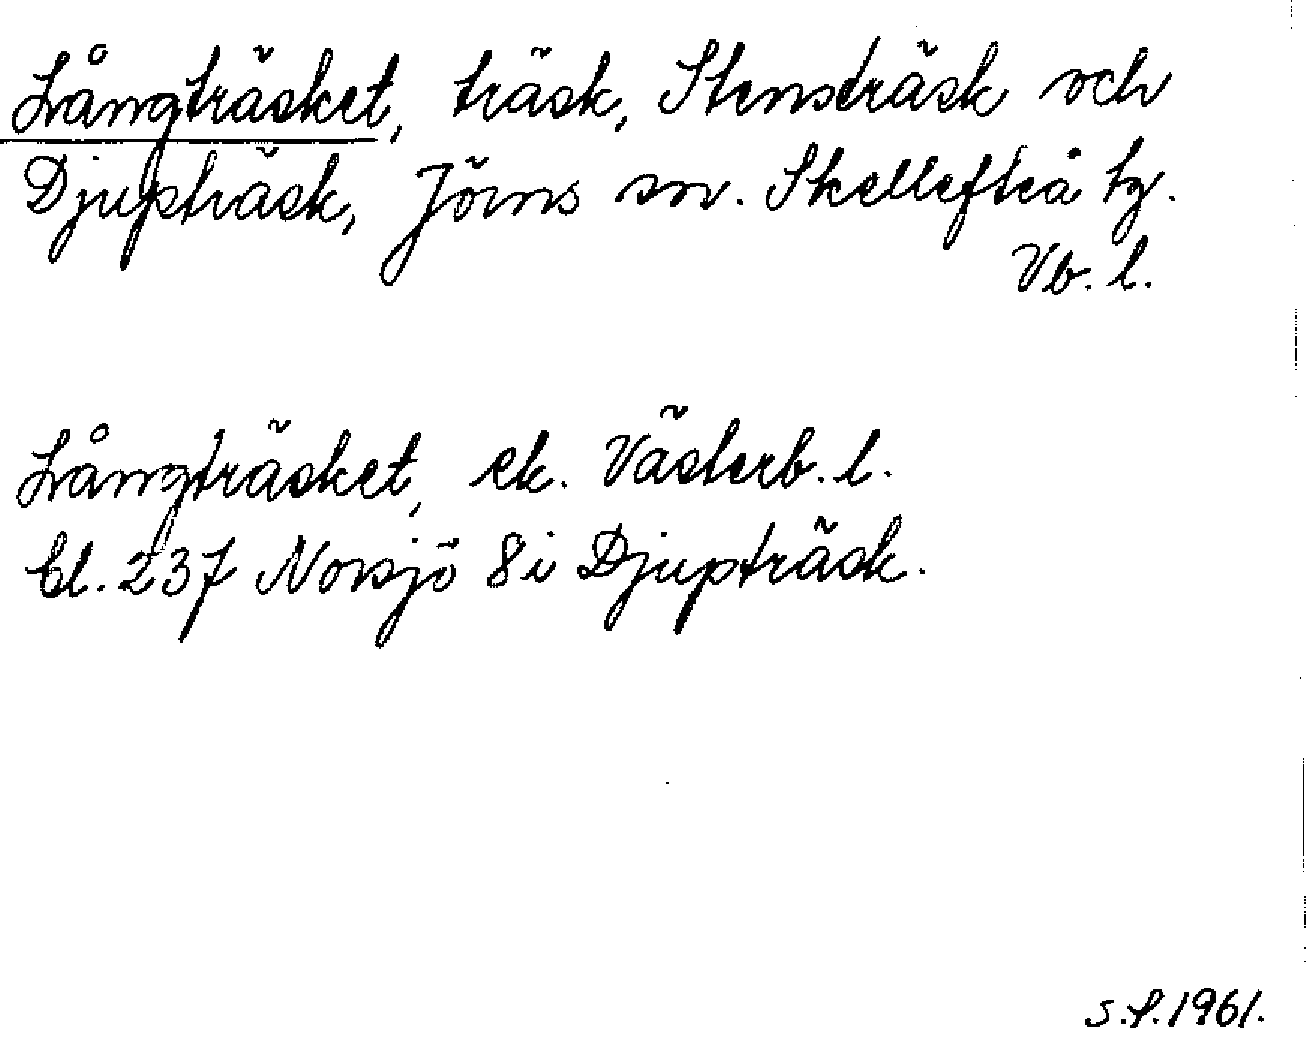 Långträsket, träsk, Stensträsk och
Djupträsk, Jörns sn. Skellefteå tg.
Vb. l.
Långträsket, ek. Västerb. l.
Bl. 237 Norsjö 8i Djupträsk.
S.P. 1961.